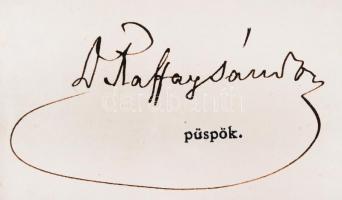 D Raffay Sándor
püspök.